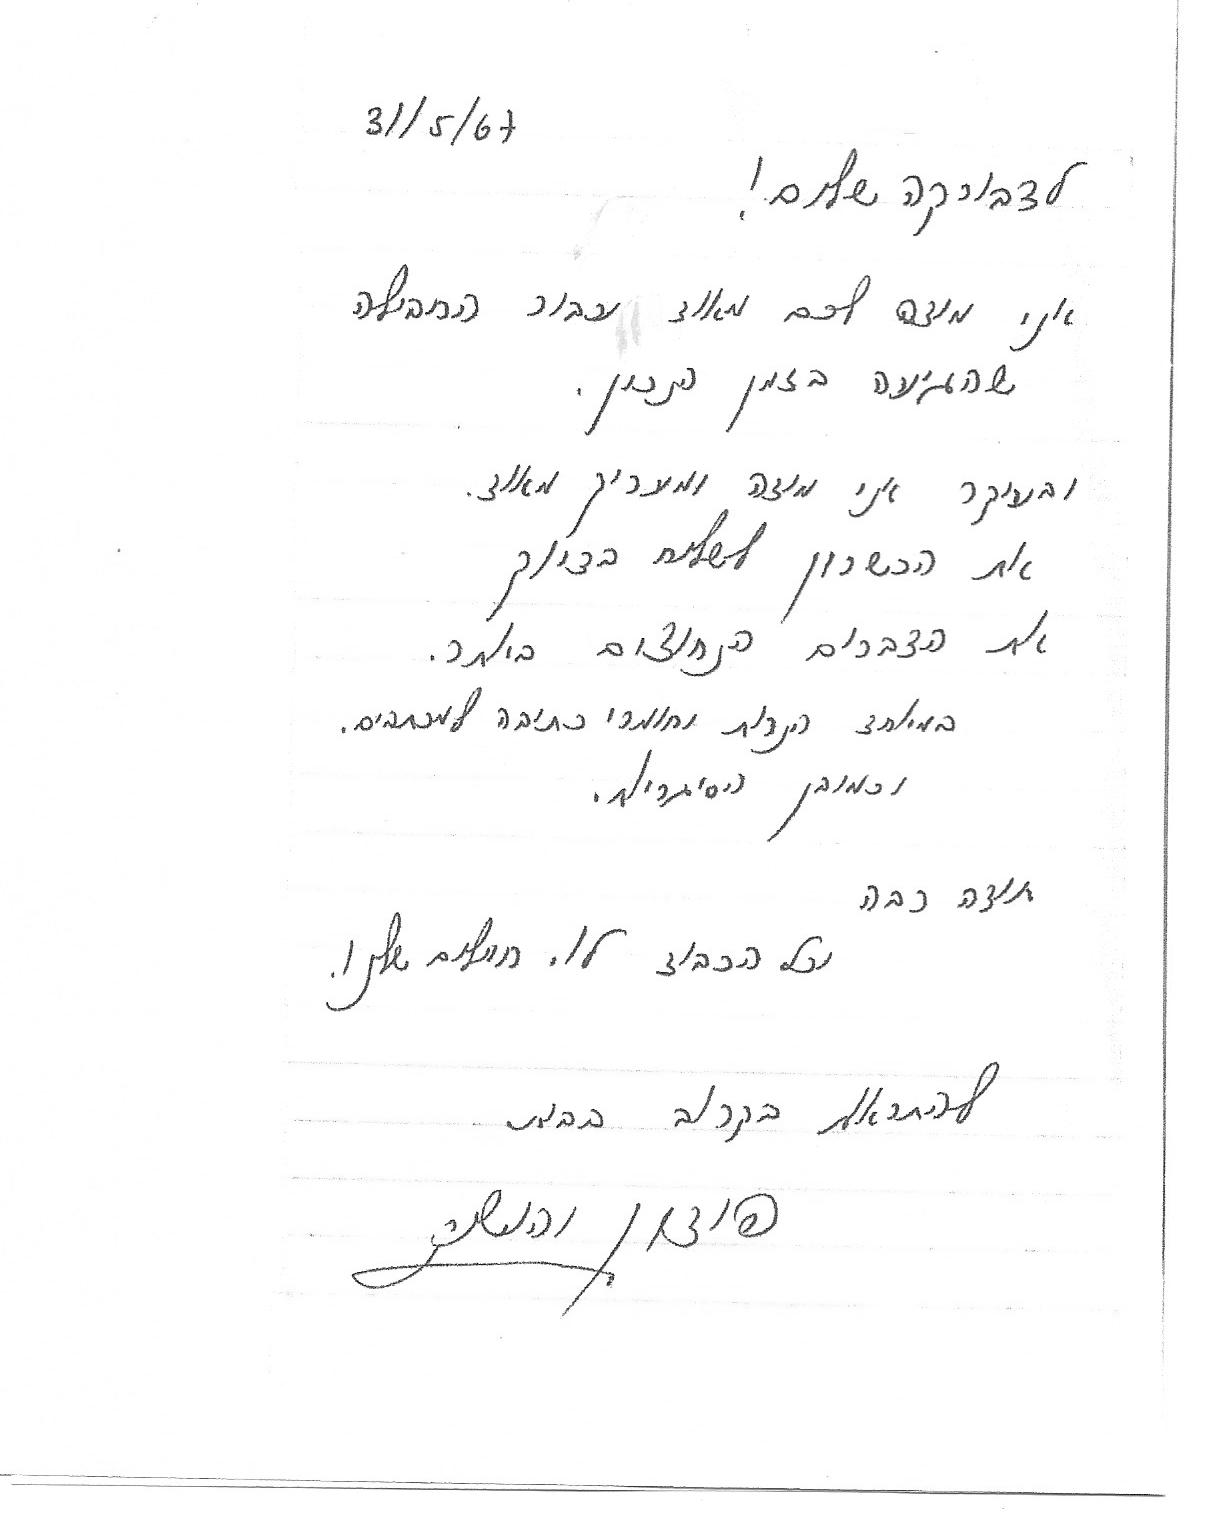 31/5/67
לדבורקה שלום!
אני מודה לכם מאוד עבור החבילה
שהגיעה בזמן הנכון.
ובעיקר אני מודה ומעריך מאוד.
את הכשרון לשלוח בדיוק
את הדברים הנחוצים ביותר.
במיוחד הנרות וחומרי כתיבה למכתבים.
וכמובן הסיגריות.
תודה רבה
וכל הכבוד
להתראות בקרוב בבית